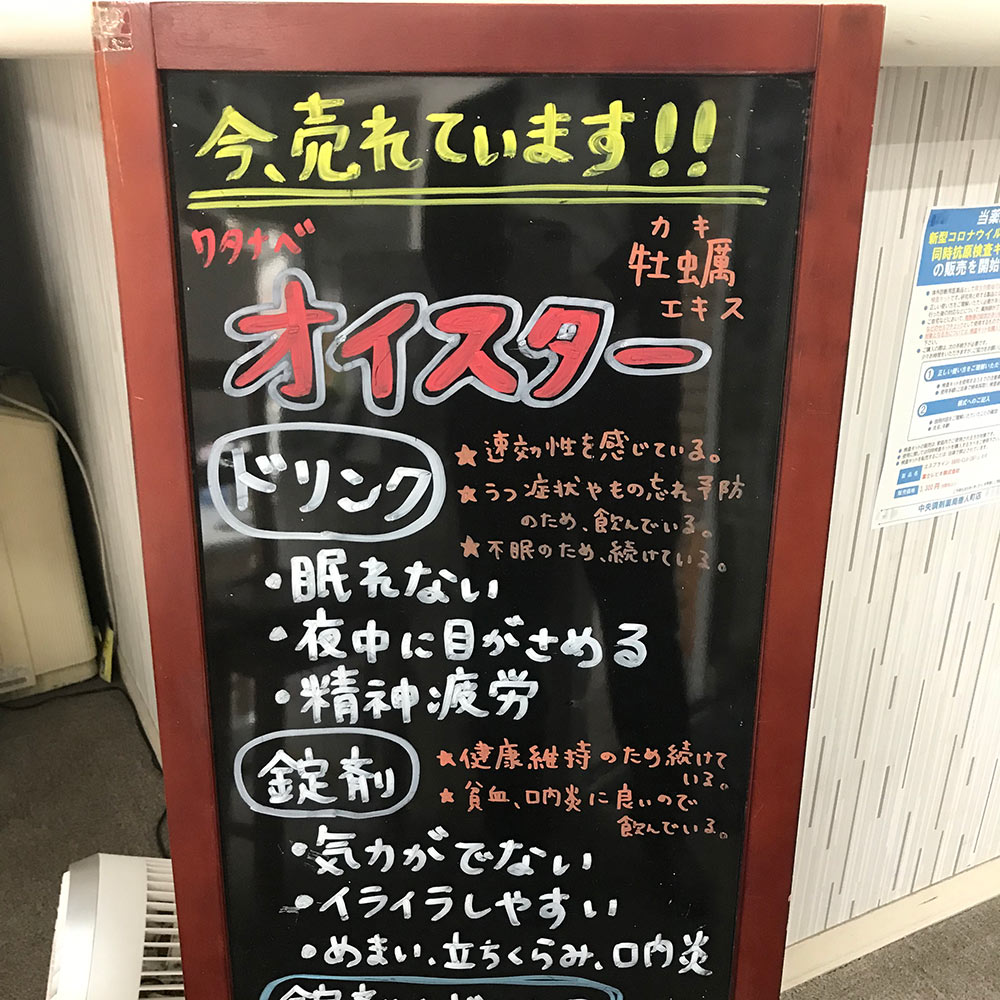 今、売れています!!
ワタナベ
カキ
牡蠣
エキス
オイスター
ドリンク
★速効性を感じている。
★うつ症状やもの忘れ予防
のため、飲んでいる。
★不眠のため、続けている。
・眠れない
・夜中に目がさめる
・精神疲労
錠剤
★健康維持のため続けて
いる。
★貧血、口内炎に良いので
飲んでいる。
・気力がでない
・イライラしやすい
・めまい、立ちくらみ、口内炎
錠剤
当薬
新型コロナウイル
同時抗原検査キ
の販売を開始
① 正しい使い方をご理解いただ
② 様式へのご記入